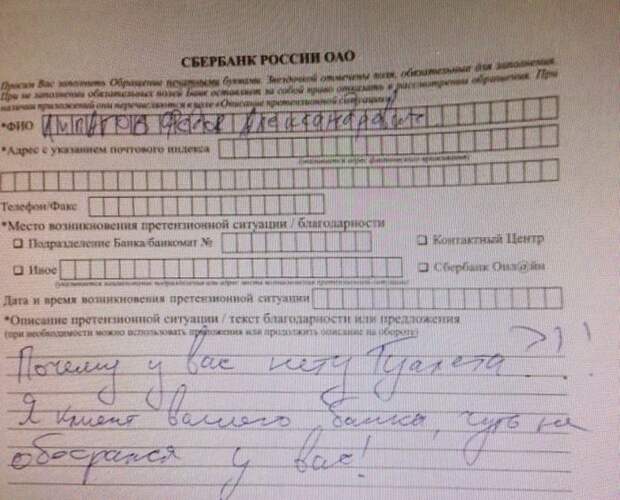 СБЕРБАНК РОССИИ ОАО
Просим Вас заполнить Обращение печатными буквами. Звездочкой отмечены поля, обязательные для заполнения.
При не заполнении обязательных полей Банк оставляет за собой право отказать в рассмотрении обращения. При
наличии приложений они перечисляются в поле «Описание претензионной ситуации»
*ФИО
*Адрес с указанием почтового индекса
(указывается адрес фактического проживания)
Телефон/Факс
*Место возникновения претензионной ситуации / благодарности
Подразделение Банка/банкомат № Контактный Центр
Иное Сбербанк Онл@йн
(указывается наименование подразделения или адрес места возникновения претензионной ситуации)
Дата и время возникновения претензионной ситуации
*Описание претензионной ситуации / текст благодарности или предложения
(при необходимости можно использовать приложения или продолжить описание на обороте)
Почему у вас нету Туалета?!!
Я клиент вашего банка, чуть не
обосрался у вас!